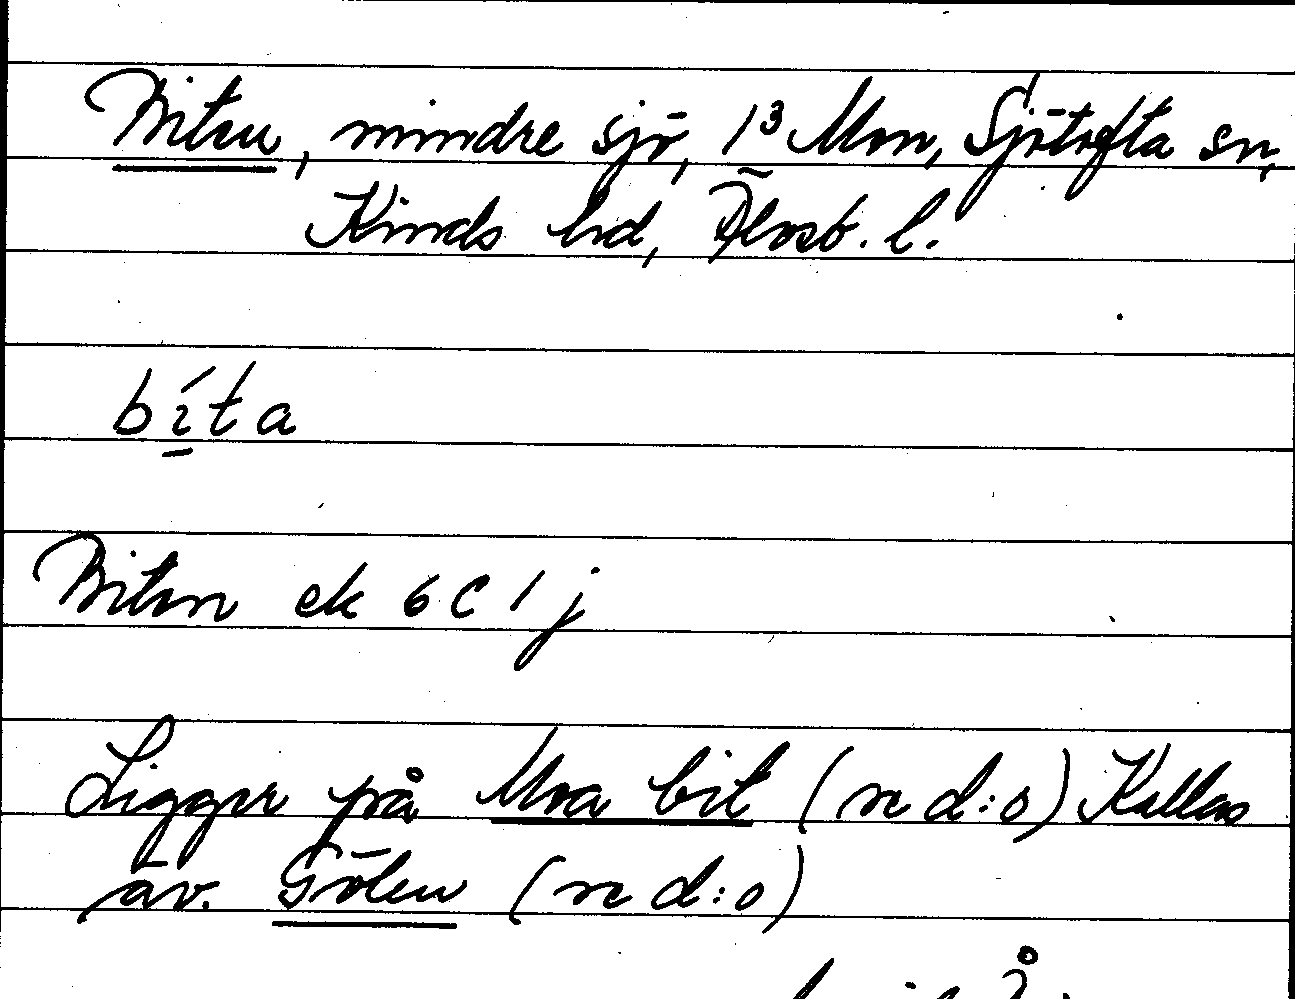 Biten, mindre sjö, 1³ Mon, Sjötofta sn,
Kinds hd, Älvsb. l.
bíta
Biten ek 6 C 1 j
Ligger på Moa bit (se d:o) Kallas
äv. Gölen (se d:o)